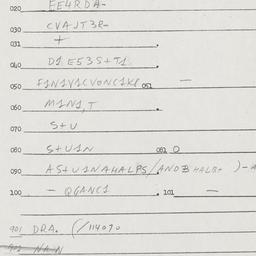 020 EE4RDA-
030 CVAJT3R-
031 +
040 D1E53S+T1
050 051 —
060 M1N1,T
070 S+U
080 S+U1N 081 0
090 AS+U1NAHALPS/AND3HALB+ )-A
100 — QGANC1 101 —
901 DRA. (/114070
902 NAN